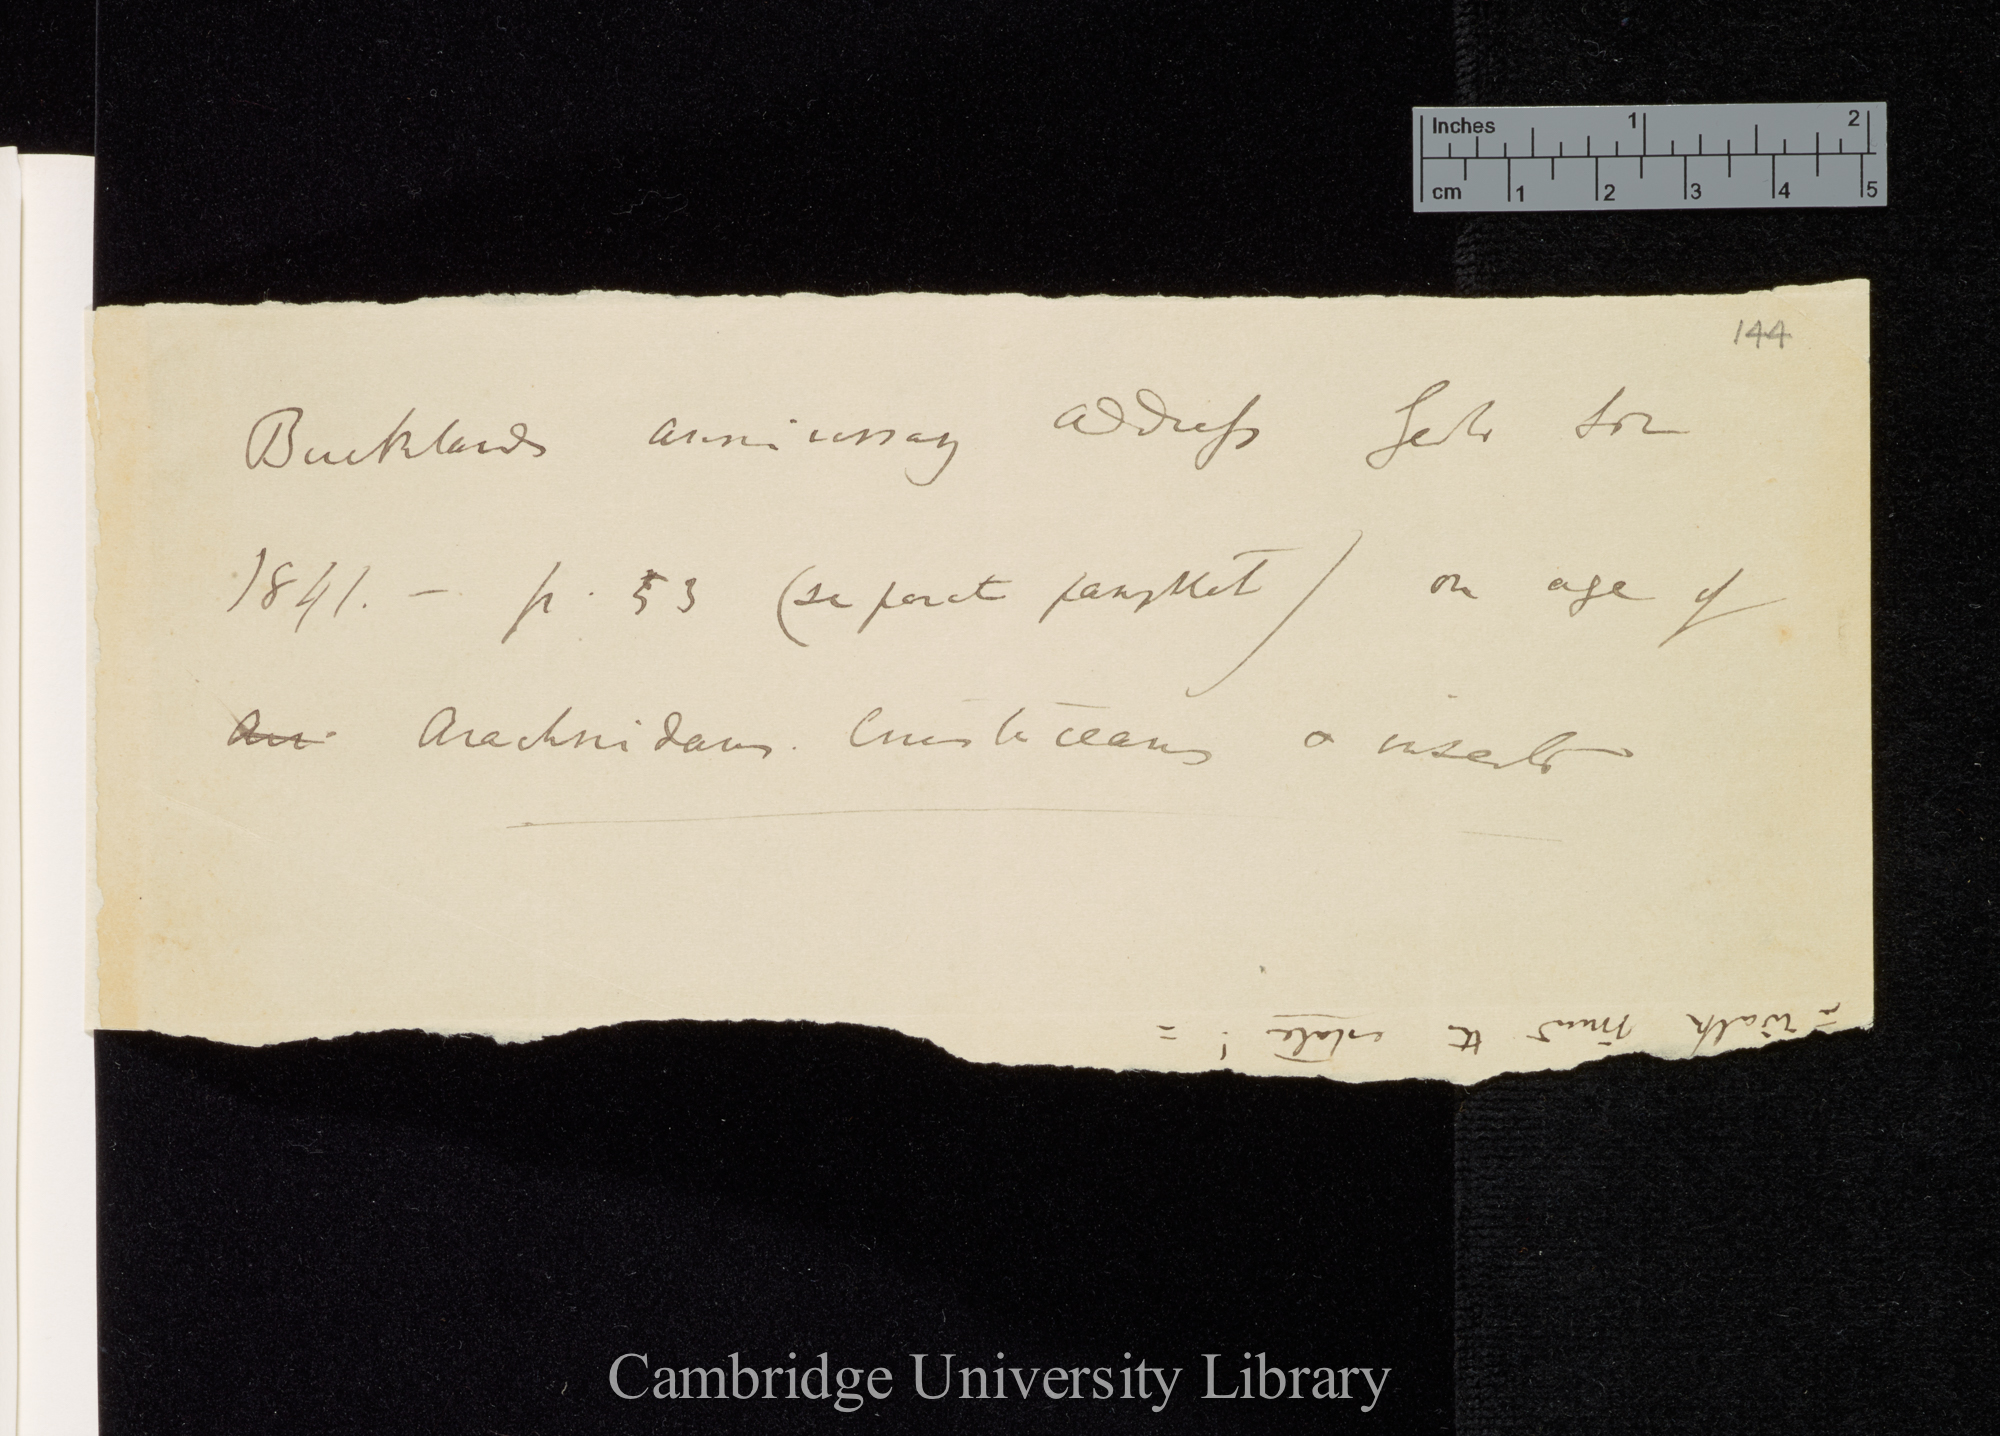 Inches 1 2
cm 1 2 3 4 5
144
Bucklands anniversary address Geolo Soc
1841. — p. 53 (separate pamphlet) on age of
Arachnidans. Crustaceans & insects
= walk round the estate! =
Cambridge University Library